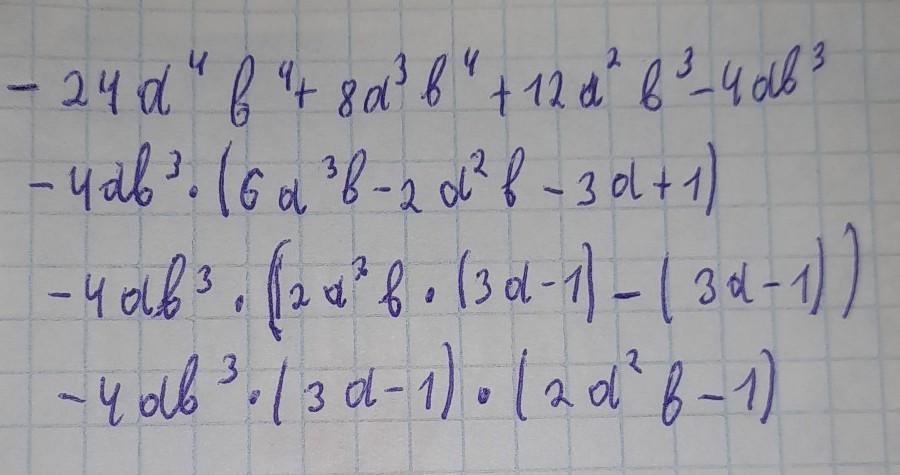 - 24a⁴ b⁴ + 8a³ b⁴ + 12a² b³ - 4ab³
- 4ab³ · (6a³b - 2a²b - 3a + 1)
- 4ab³ · (2a²b · (3a - 1) - (3a - 1))
- 4ab³ · (3a - 1) · (2a² b - 1)